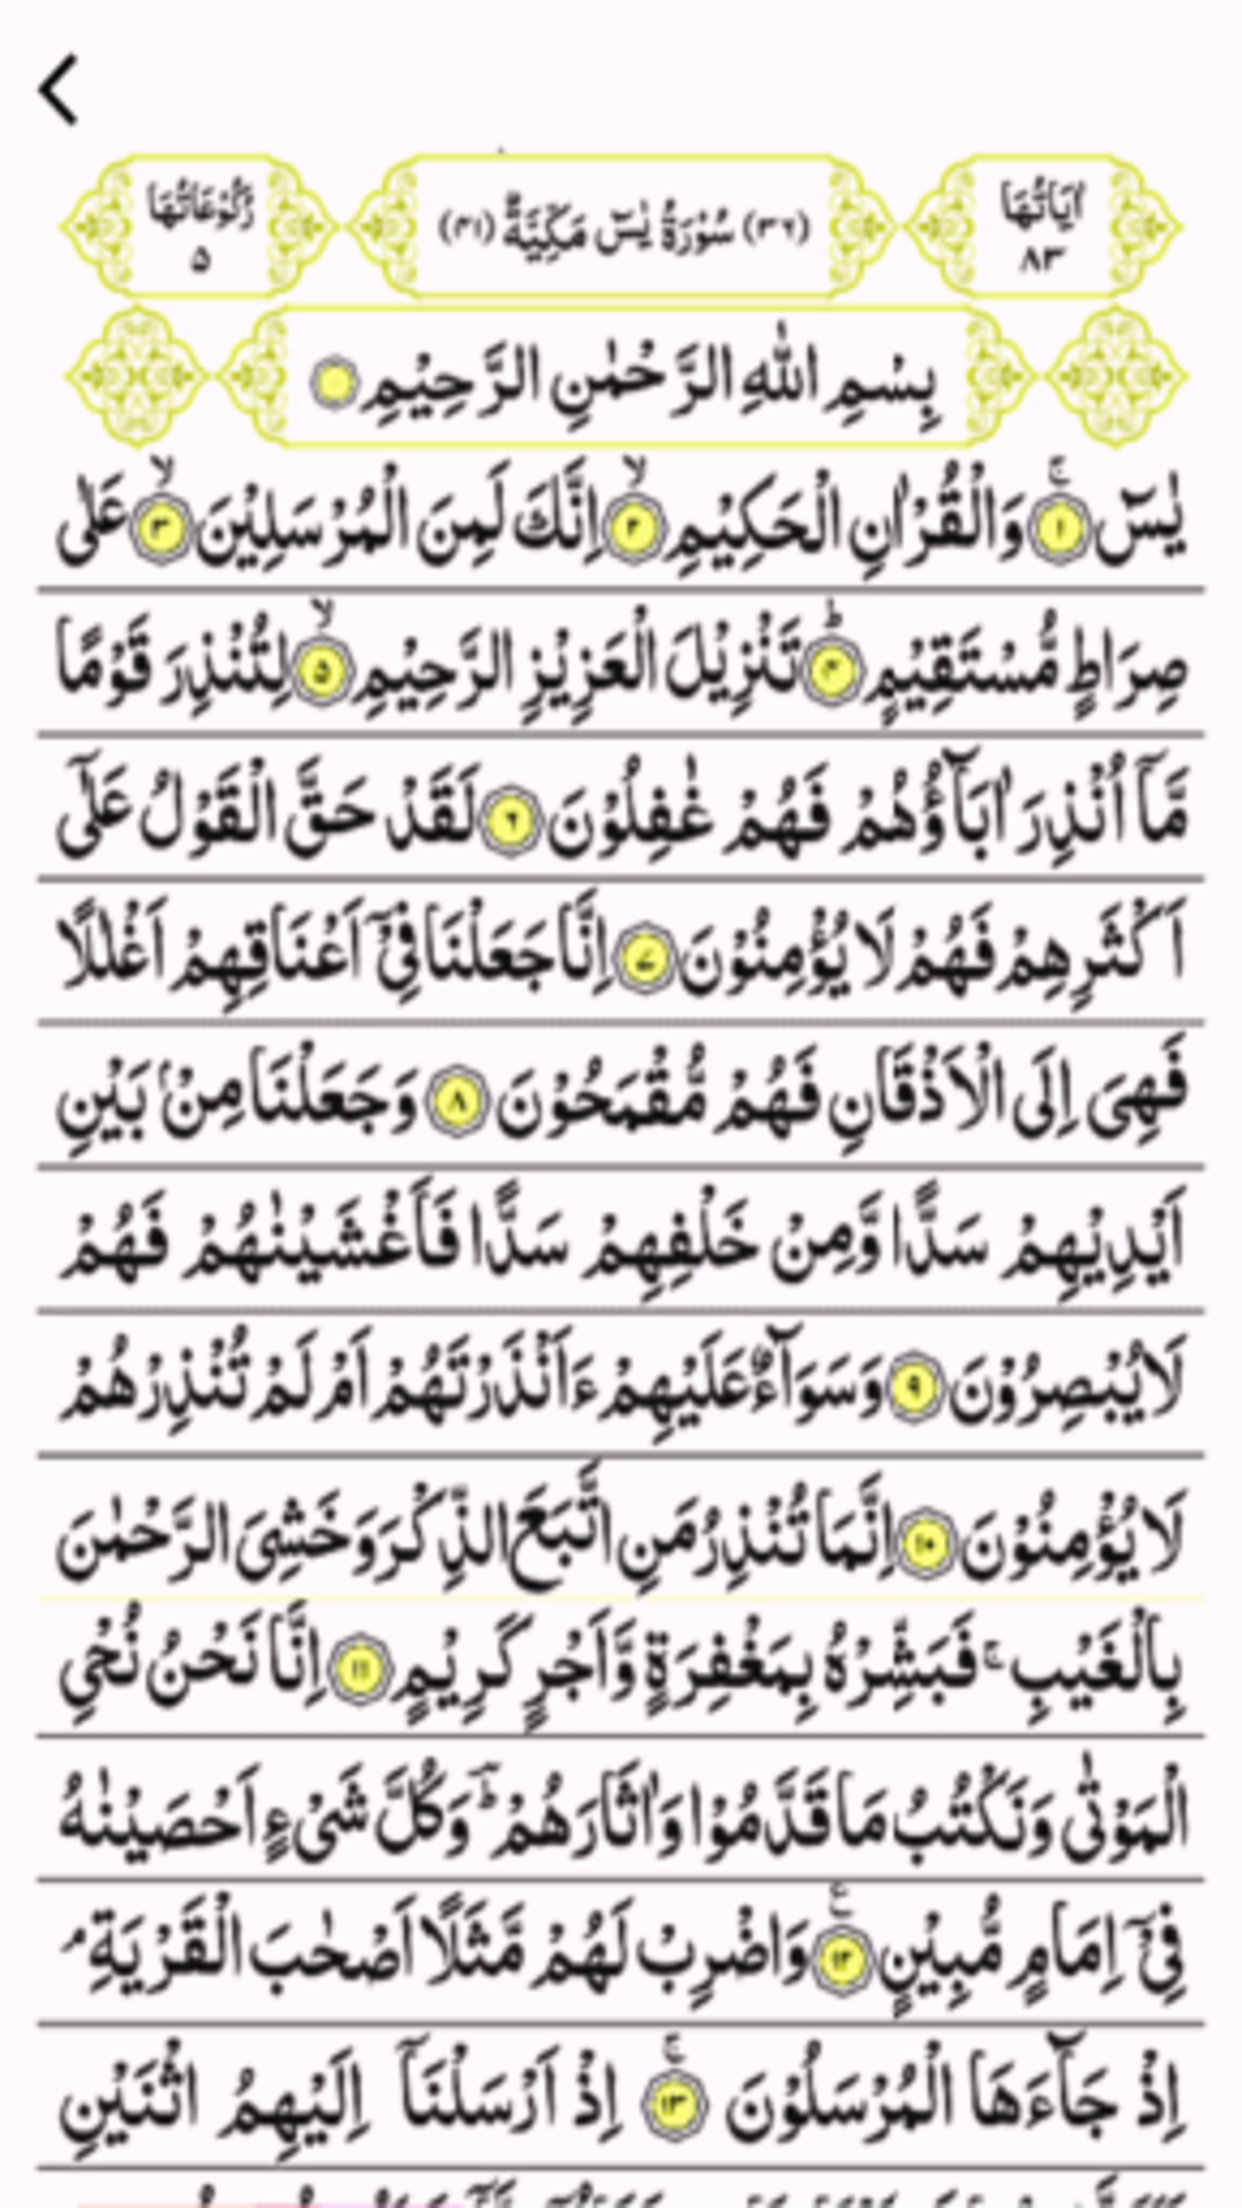 اٰيَاتُهَا ٨٣
(٣٦) سُوْرَةُ يٰسٓ مَكِّيَّةٌ (٤١)
رُكُوْعَاتُهَا ٥
بِسْمِ اللّٰهِ الرَّحْمٰنِ الرَّحِيْمِ
يٰسٓ ۚ﴿١﴾ وَالْقُرْاٰنِ الْحَكِيْمِ ۙ﴿٢﴾ اِنَّكَ لَمِنَ الْمُرْسَلِيْنَ ۙ﴿٣﴾ عَلٰى
صِرَاطٍ مُّسْتَقِيْمٍ ؕ﴿٤﴾ تَنْزِيْلَ الْعَزِيْزِ الرَّحِيْمِ ۙ﴿٥﴾ لِتُنْذِرَ قَوْمًا
مَّآ اُنْذِرَ اٰبَآؤُهُمْ فَهُمْ غٰفِلُوْنَ ﴿٦﴾ لَقَدْ حَقَّ الْقَوْلُ عَلٰٓى
اَكْثَرِهِمْ فَهُمْ لَا يُؤْمِنُوْنَ ﴿٧﴾ اِنَّا جَعَلْنَا فِيْٓ اَعْنَاقِهِمْ اَغْلٰلًا
فَهِىَ اِلَى الْاَذْقَانِ فَهُمْ مُّقْمَحُوْنَ ﴿٨﴾ وَجَعَلْنَا مِنْۢ بَيْنِ
اَيْدِيْهِمْ سَدًّا وَّمِنْ خَلْفِهِمْ سَدًّا فَاَغْشَيْنٰهُمْ فَهُمْ
لَا يُبْصِرُوْنَ ﴿٩﴾ وَسَوَآءٌ عَلَيْهِمْ ءَاَنْذَرْتَهُمْ اَمْ لَمْ تُنْذِرْهُمْ
لَا يُؤْمِنُوْنَ ﴿١٠﴾ اِنَّمَا تُنْذِرُ مَنِ اتَّبَعَ الذِّكْرَ وَخَشِىَ الرَّحْمٰنَ
بِالْغَيْبِ ۚ فَبَشِّرْهُ بِمَغْفِرَةٍ وَّاَجْرٍ كَرِيْمٍ ﴿١١﴾ اِنَّا نَحْنُ نُحْيِ
الْمَوْتٰى وَنَكْتُبُ مَا قَدَّمُوْا وَاٰثَارَهُمْ ؕ وَكُلَّ شَىْءٍ اَحْصَيْنٰهُ
فِيْٓ اِمَامٍ مُّبِيْنٍ ﴿١٢﴾ وَاضْرِبْ لَهُمْ مَّثَلًا اَصْحٰبَ الْقَرْيَةِ ۘ
اِذْ جَآءَهَا الْمُرْسَلُوْنَ ۚ﴿١٣﴾ اِذْ اَرْسَلْنَآ اِلَيْهِمُ اثْنَيْنِ